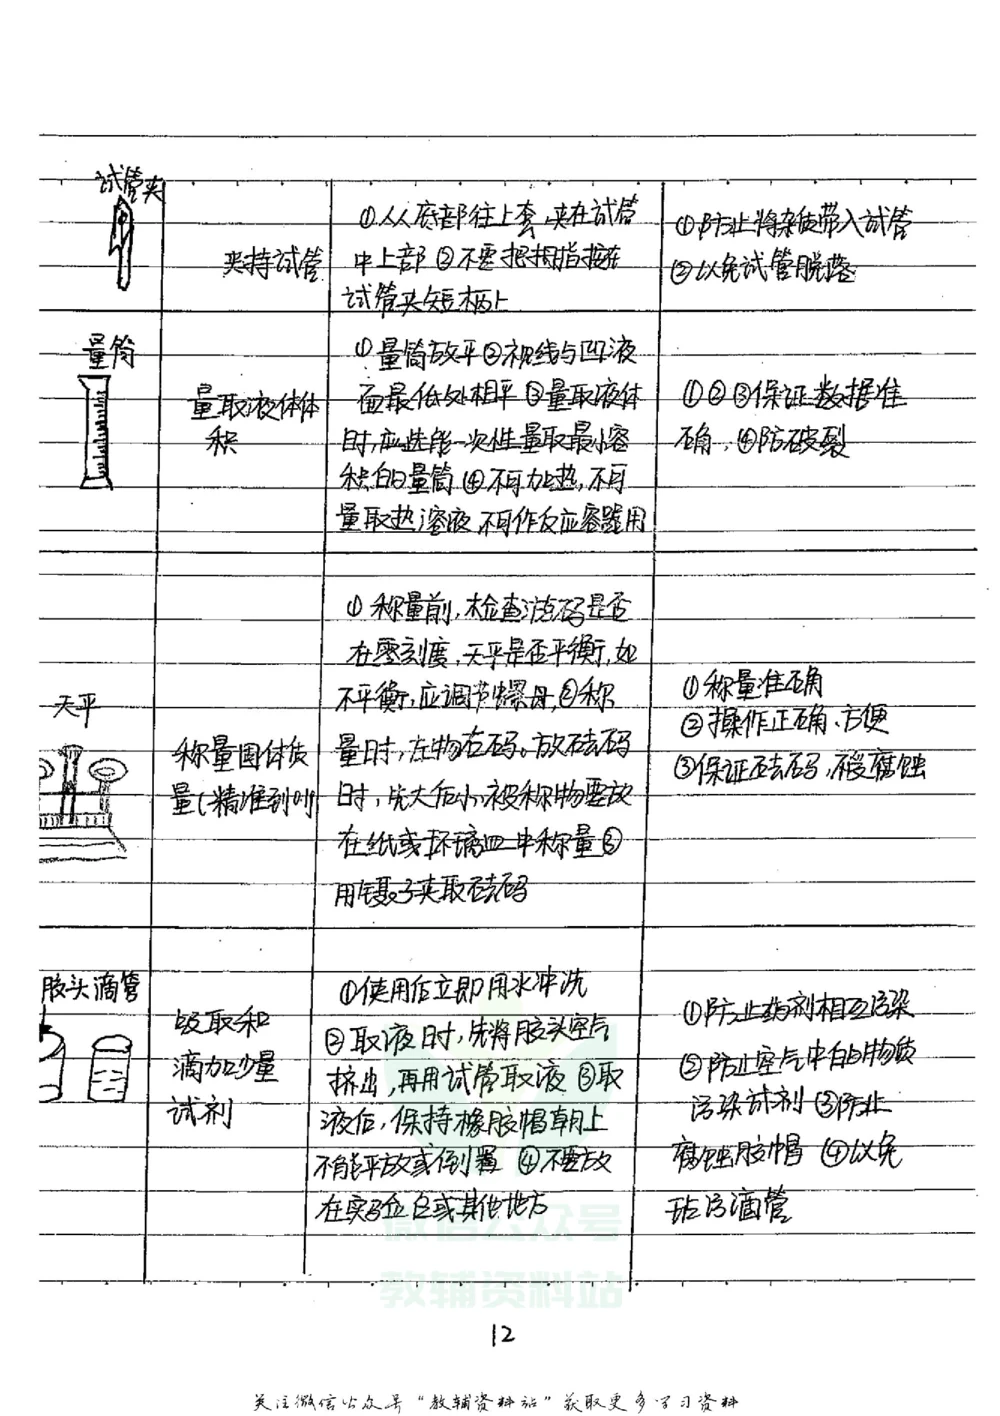 试管夹
夹持试管
①从底部往上套,夹在试管
中上部②不要把拇指按在
试管夹短柄上
①防止将杂质带入试管
②以免试管脱落
量筒
量取液体体
积
①量筒放平②视线与凹液
面最低处相平③量取液体
时,应选能一次性量取最小容
积的量筒④不可加热,不可
量取热溶液,不可作反应容器用
①②③保证数据准
确,④防破裂
天平
称量固体质
量(精准到0.1)
①称量前,检查游码是否
在零刻度,天平是否平衡,如
不平衡,应调节螺母,②称
量时,左物右码。放砝码
时,先大后小,被称物要放
在纸或玻璃皿中称量③
用镊子夹取砝码
①称量准确
②操作正确、方便
③保证砝码,不受腐蚀
胶头滴管
吸取和
滴加少量
试剂
①使用后立即用水冲洗
②取液时,先将胶头空气
挤出,再用试管取液③取
液后,保持橡胶帽朝上
不能平放或倒置④不要放
在实验台或其他地方
①防止药剂相互污染
②防止空气中的物质
污染试剂③防止
腐蚀胶帽④以免
玷污滴管
微信公众号
教辅资料站
12
关注微信公众号“教辅资料站”获取更多学习资料